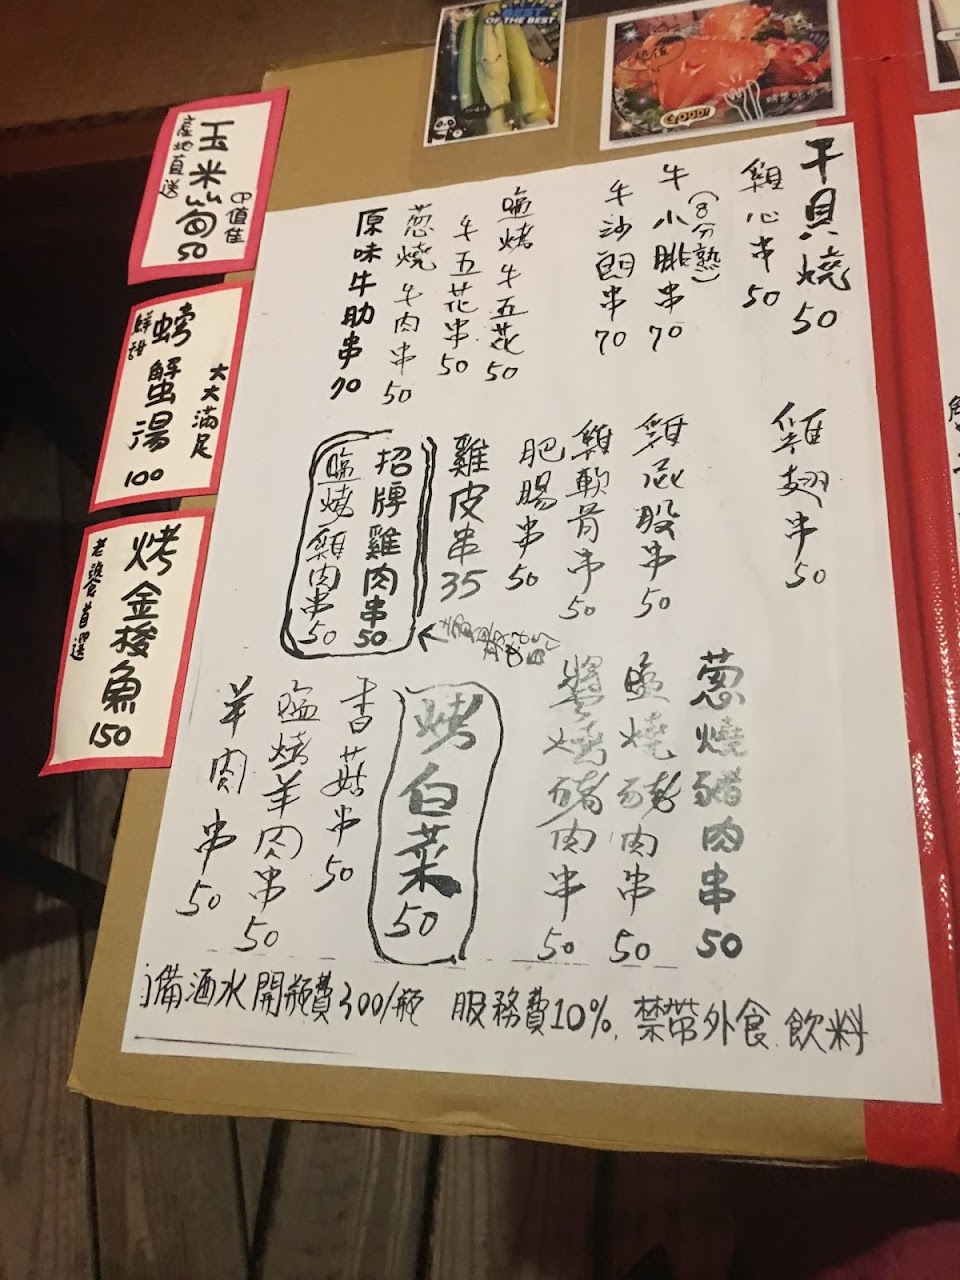 BEST
OF THE BEST
GOOD!
玉米筍 50
產地直送
CP值佳
螃蟹湯 100
鮮甜
大大滿足
烤金梭魚 150
老饕首選
干貝燒 50
雞心串 50
牛小排串 70
(8分熟)
牛沙朗串 70
鹽烤牛五花 50
牛五花串 50
蔥燒牛肉串 50
原味牛肋串 70
雞翅串 50
雞屁股串 50
雞軟骨串 50
肥腸串 50
雞皮串 35
招牌雞肉串 50
鹽烤雞肉串 50
蔥燒豬肉串 50
鹽燒豬肉串 50
醬燒豬肉串 50
烤白菜 50
香菇串 50
鹽烤羊肉串 50
羊肉串 50
備酒水開瓶費300/瓶 服務費10%. 禁帶外食.飲料